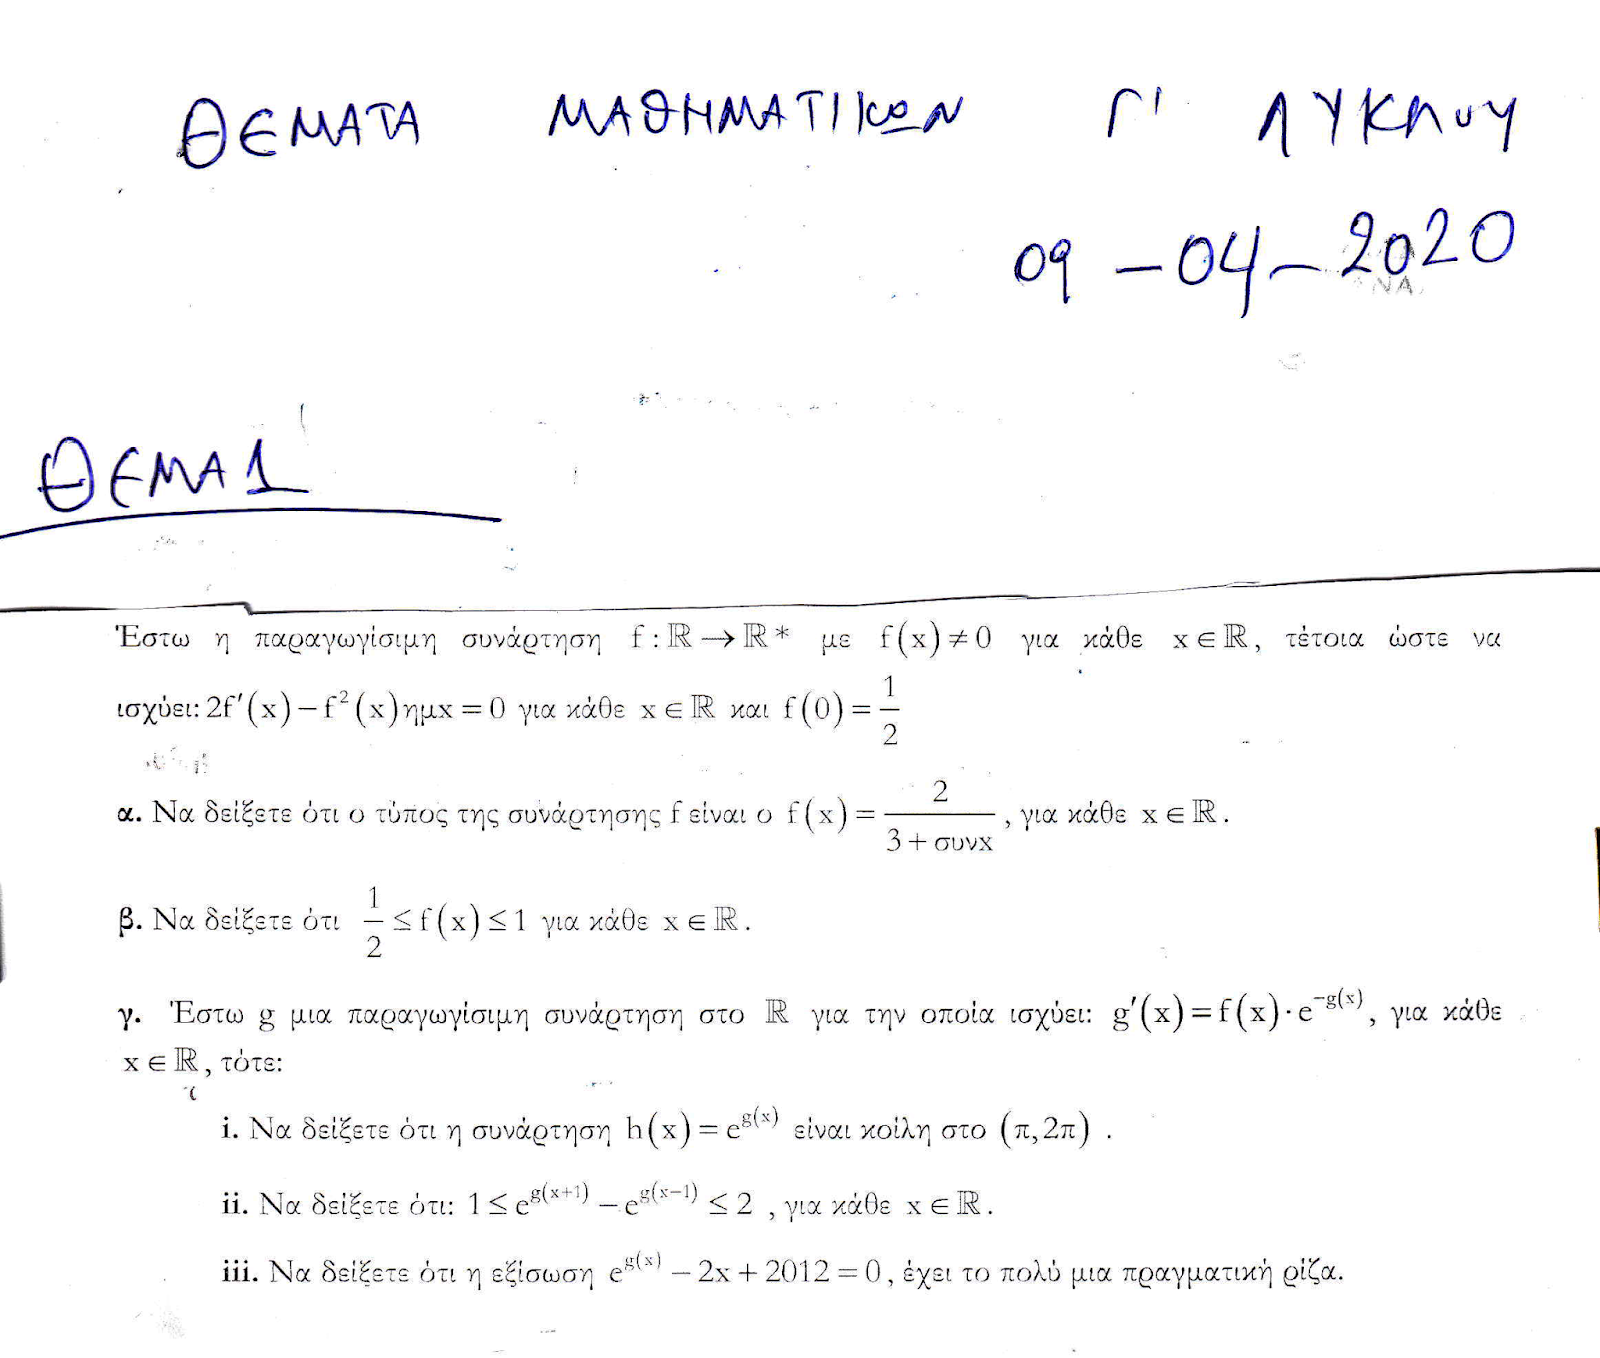 ΘΕΜΑΤΑ ΜΑΘΗΜΑΤΙΚΩΝ Γ' ΛΥΚΛΟΥ
09-04-2020
ΘΕΜΑ 1
Έστω η παραγωγίσιμη συνάρτηση f : ℝ → ℝ* με f(x) ≠ 0 για κάθε x ∈ ℝ, τέτοια ώστε να
ισχύει: 2f′(x) − f²(x)ημx = 0 για κάθε x ∈ ℝ και f(0) = 1/2
α. Να δείξετε ότι ο τύπος της συνάρτησης f είναι ο f(x) = 2/(3 + συνx), για κάθε x ∈ ℝ.
β. Να δείξετε ότι 1/2 ≤ f(x) ≤ 1 για κάθε x ∈ ℝ.
γ. Έστω g μια παραγωγίσιμη συνάρτηση στο ℝ για την οποία ισχύει: g′(x) = f(x)·e^{−g(x)}, για κάθε
x ∈ ℝ, τότε:
i. Να δείξετε ότι η συνάρτηση h(x) = e^{g(x)} είναι κοίλη στο (π,2π) .
ii. Να δείξετε ότι: 1 ≤ e^{g(x+1)} − e^{g(x−1)} ≤ 2 , για κάθε x ∈ ℝ.
iii. Να δείξετε ότι η εξίσωση e^{g(x)} − 2x + 2012 = 0, έχει το πολύ μια πραγματική ρίζα.